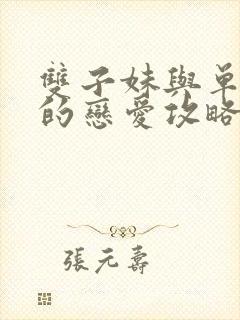 雙子妹與單
的戀愛攻略
張元壽